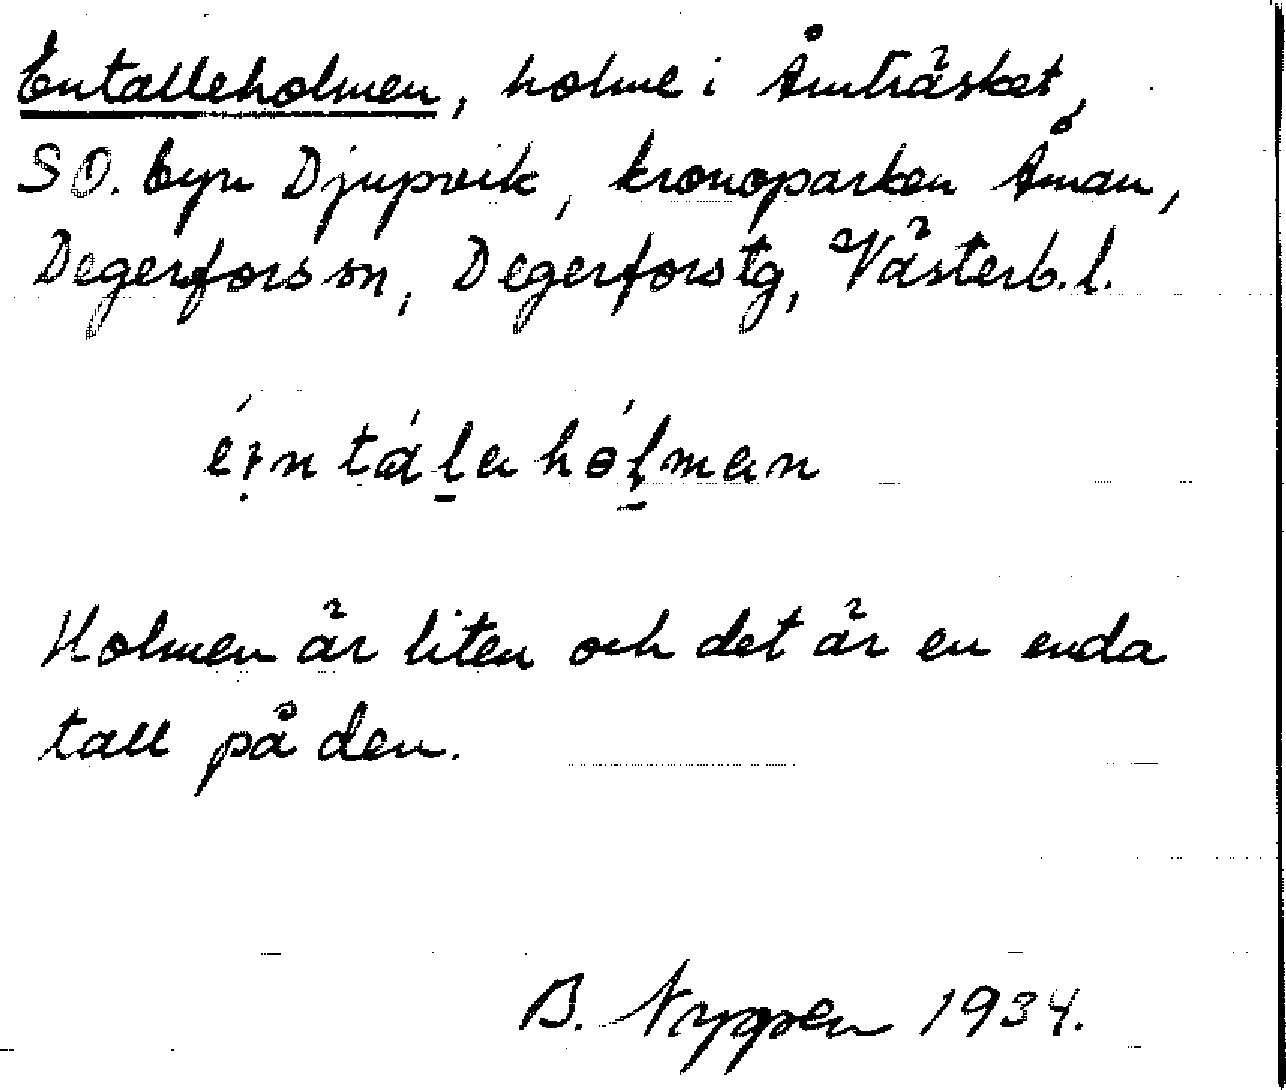 Entalleholmen, holme i Åmträsket,
SO. byn Djupvik, kronoparken Åman,
Degerfors sn, Degerfors tg, Västerb. l.
Holmen är liten och det är en enda
tall på den.
B. Nygren 1934.